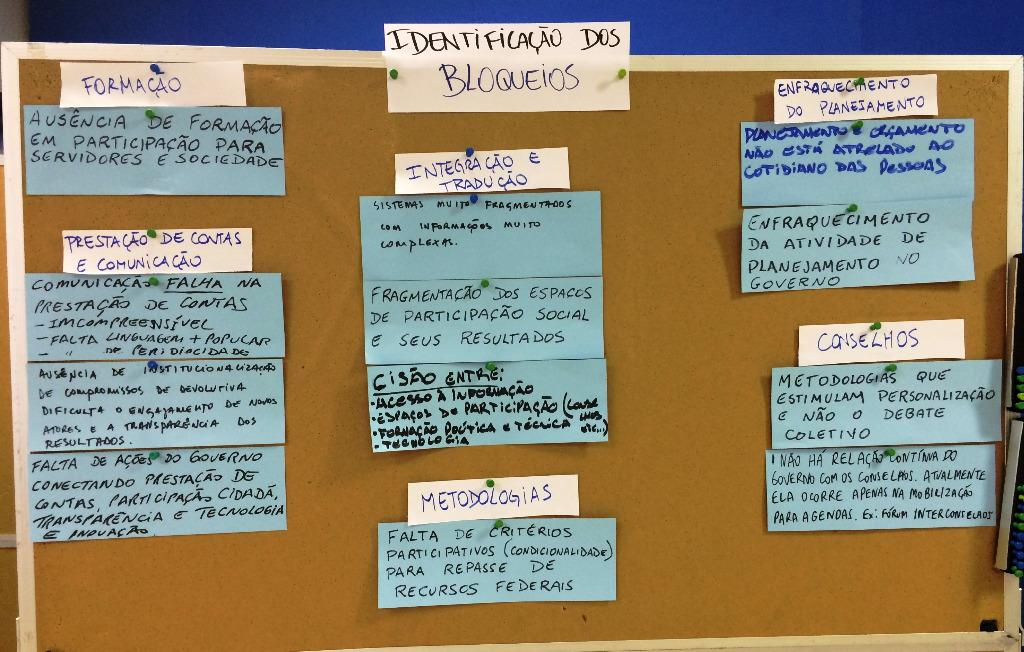 IDENTIFICAÇÃO DOS
BLOQUEIOS
FORMAÇÃO
AUSÊNCIA DE FORMAÇÃO
EM PARTICIPAÇÃO PARA
SERVIDORES E SOCIEDADE
PRESTAÇÃO DE CONTAS
E COMUNICAÇÃO
COMUNICAÇÃO FALHA NA
PRESTAÇÃO DE CONTAS
- IMCOMPREENSÍVEL
- FALTA LINGUAGEM + POPULAR
- " DE PERIDIOCIDADE
AUSÊNCIA DE INSTITUCIONALIZAÇÃO
DE COMPROMISSOS DE DEVOLUTIVA
DIFICULTA O ENGAJAMENTO DE NOVOS
ATORES E A TRANSPARÊNCIA DOS
RESULTADOS.
FALTA DE AÇÕES DO GOVERNO
CONECTANDO PRESTAÇÃO DE
CONTAS, PARTICIPAÇÃO CIDADÃ,
TRANSPARÊNCIA E TECNOLOGIA
E INOVAÇÃO.
INTEGRAÇÃO E
TRADUÇÃO
SISTEMAS MUITO FRAGMENTADOS
COM INFORMAÇÕES MUITO
COMPLEXAS.
FRAGMENTAÇÃO DOS ESPAÇOS
DE PARTICIPAÇÃO SOCIAL
E SEUS RESULTADOS
CISÃO ENTRE:
• ACESSO À INFORMAÇÃO
• ESPAÇOS DE PARTICIPAÇÃO (CONSE
LHOS
• FORMAÇÃO POLÍTICA E TÉCNICA ETC...)
• TECNOLOGIA
METODOLOGIAS
FALTA DE CRITÉRIOS
PARTICIPATIVOS (CONDICIONALIDADE)
PARA REPASSE DE
RECURSOS FEDERAIS
ENFRAQUECIMENTO
DO PLANEJAMENTO
PLANEJAMENTO E ORÇAMENTO
NÃO ESTÁ ATRELADO AO
COTIDIANO DAS PESSOAS
ENFRAQUECIMENTO
DA ATIVIDADE DE
PLANEJAMENTO NO
GOVERNO
CONSELHOS
METODOLOGIAS QUE
ESTIMULAM PERSONALIZAÇÃO
E NÃO O DEBATE
COLETIVO
NÃO HÁ RELAÇÃO CONTÍNUA DO
GOVERNO COM OS CONSELHOS. ATUALMENTE
ELA OCORRE APENAS NA MOBILIZAÇÃO
PARA AGENDAS. EX: FÓRUM INTERCONSELHOS